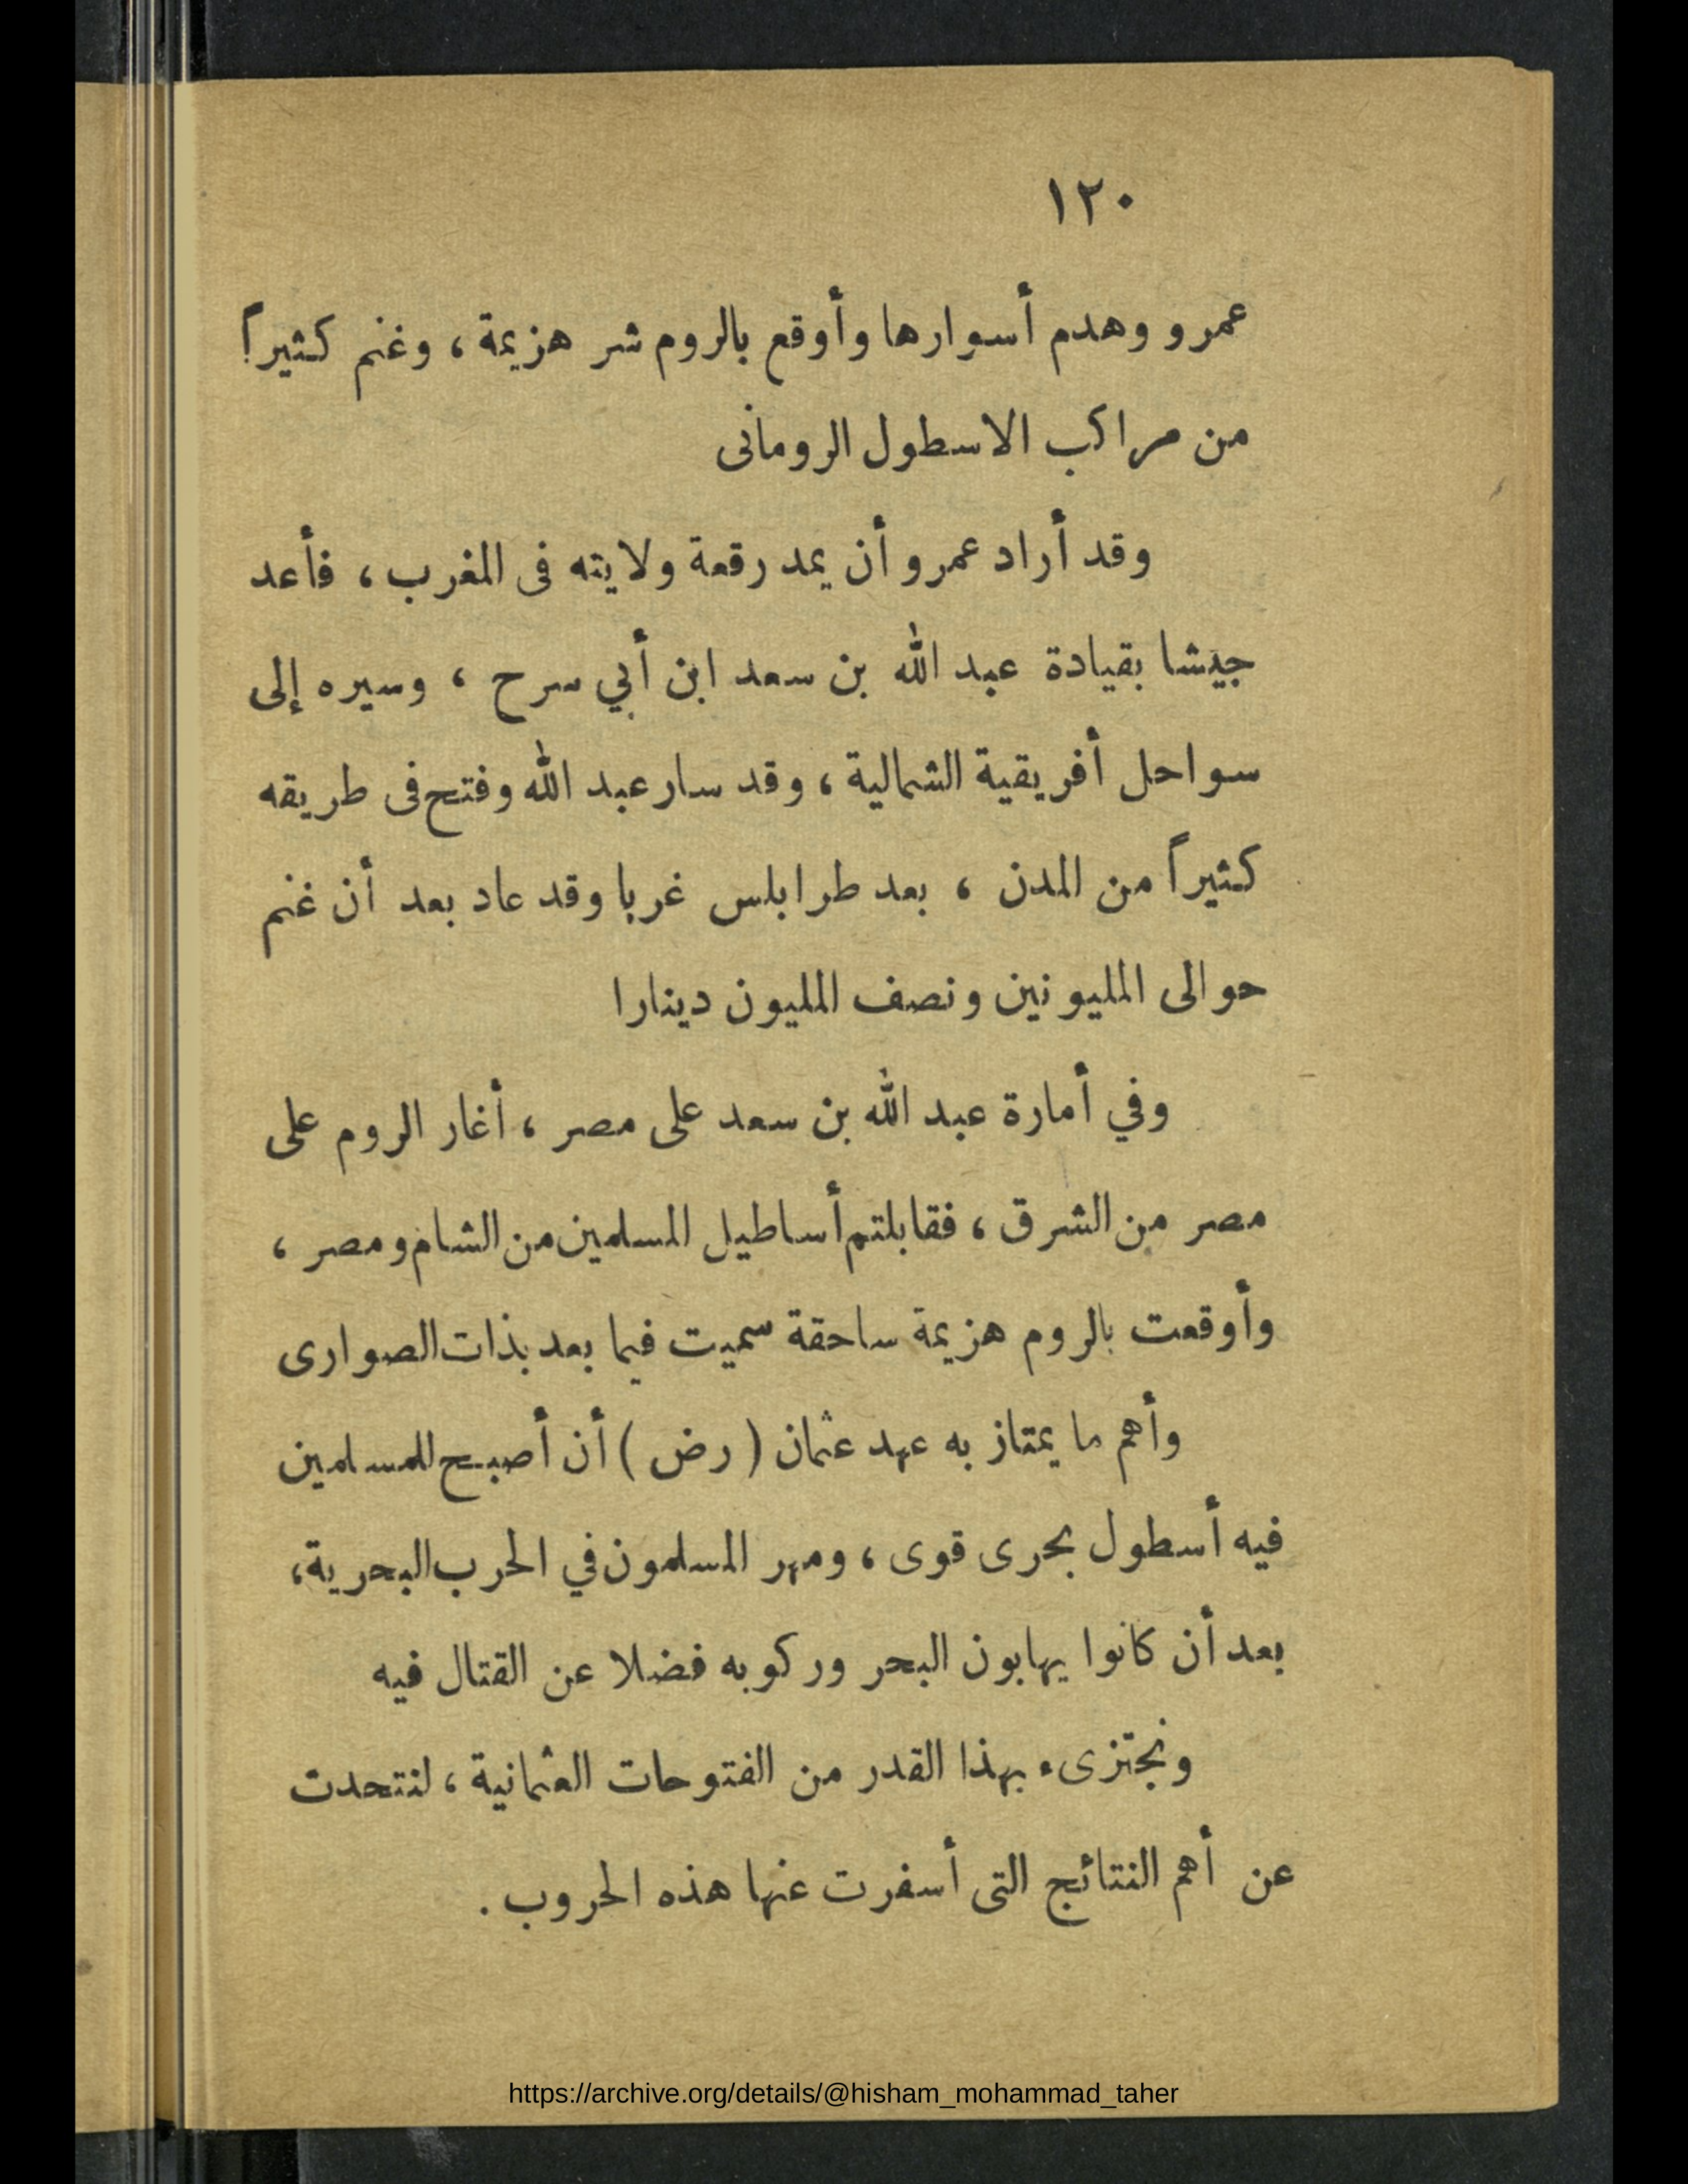 ١٢٠
عمرو وهدم أسوارها وأوقع بالروم شر هزيمة ، وغنم كثيراً
من مراكب الاسطول الرومانى
وقد أراد عمرو أن يمد رقعة ولايته فى المغرب ، فأعد
جيشا بقيادة عبد الله بن سعد ابن أبي سرح ، وسيره إلى
سواحل أفريقية الشمالية ، وقد سار عبد الله وفتح فى طريقه
كثيراً من المدن ، بعد طرابلس غربا وقد عاد بعد أن غنم
حوالى المليونين ونصف المليون دينارا
وفي أمارة عبد الله بن سعد على مصر ، أغار الروم على
مصر من الشرق ، فقابلتم أساطيل المسلمين من الشام ومصر ،
وأوقعت بالروم هزيمة ساحقة سميت فيما بعد بذات الصوارى
وأهم ما يمتاز به عهد عثمان ( رض ) أن أصبح للمسلمين
فيه أسطول بحرى قوى ، ومهر المسلمون في الحرب البحرية ،
بعد أن كانوا يهابون البحر وركوبه فضلا عن القتال فيه
ونجتزىء بهذا القدر من الفتوحات العثمانية ، لنتحدث
عن أهم النتائج التى أسفرت عنها هذه الحروب .
https://archive.org/details/@hisham_mohammad_taher